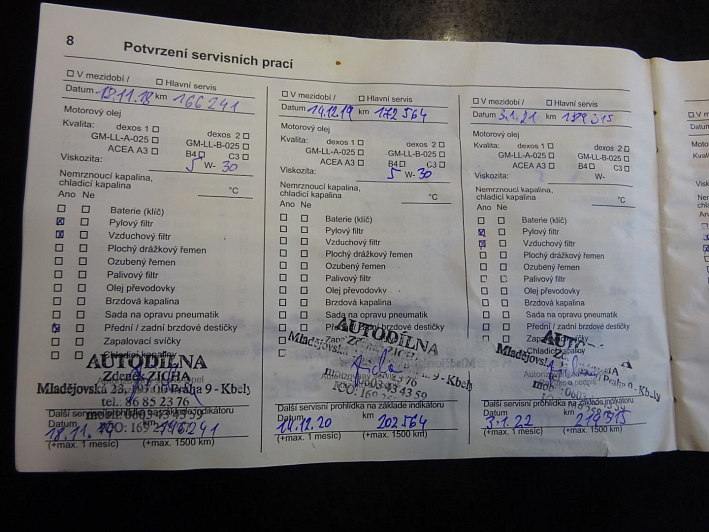 8 Potvrzení servisních prací
V mezidobí / Hlavní servis
Datum km 166 241
Motorový olej
Kvalita: dexos 1 dexos 2
GM-LL-A-025 GM-LL-B-025
ACEA A3 B4 C3
Viskozita: 5 W- 30
Nemrznoucí kapalina,
chladicí kapalina °C
Ano Ne
Baterie (klíč)
Pylový filtr
Vzduchový filtr
Plochý drážkový řemen
Ozubený řemen
Palivový filtr
Olej převodovky
Brzdová kapalina
Sada na opravu pneumatik
Přední / zadní brzdové destičky
Zapalovací svíčky
Chladicí kapaliny
AUTODÍLNA
Zdeněk ZICHA
Mladějovská 23, Praha 9 - Kbely
tel.: 86 85 23 76
Další servisní prohlídka na základě indikátoru
Datum km
18.11.
(+max. 1 měsíc) (+max. 1500 km)
V mezidobí / Hlavní servis
Datum 14.12.19 km 172 564
Motorový olej
Kvalita: dexos 1 dexos 2
GM-LL-A-025 GM-LL-B-025
ACEA A3 B4 C3
Viskozita: 5 W- 30
Nemrznoucí kapalina,
chladicí kapalina °C
Ano Ne
Baterie (klíč)
Pylový filtr
Vzduchový filtr
Plochý drážkový řemen
Ozubený řemen
Palivový filtr
Olej převodovky
Brzdová kapalina
Sada na opravu pneumatik
Přední / zadní brzdové destičky
AUTODÍLNA
ZICHA
Mladějovská Praha 9 - Kbely
Další servisní prohlídka na základě indikátoru
Datum km
14.12.20 202 564
(+max. 1 měsíc) (+max. 1500 km)
V mezidobí / Hlavní servis
Datum 3.1.21 km 189 315
Motorový olej
Kvalita: dexos 1 dexos 2
GM-LL-A-025 GM-LL-B-025
ACEA A3 B4 C3
Viskozita: W-
Nemrznoucí kapalina,
chladicí kapalina °C
Ano Ne
Baterie (klíč)
Pylový filtr
Vzduchový filtr
Plochý drážkový řemen
Ozubený řemen
Palivový filtr
Olej převodovky
Brzdová kapalina
Sada na opravu pneumatik
Přední / zadní brzdové destičky
Chladicí kapaliny
Praha 9 - Kbely
Další servisní prohlídka na základě indikátoru
Datum km
3.1.22 219 315
(+max. 1 měsíc) (+max. 1500 km)